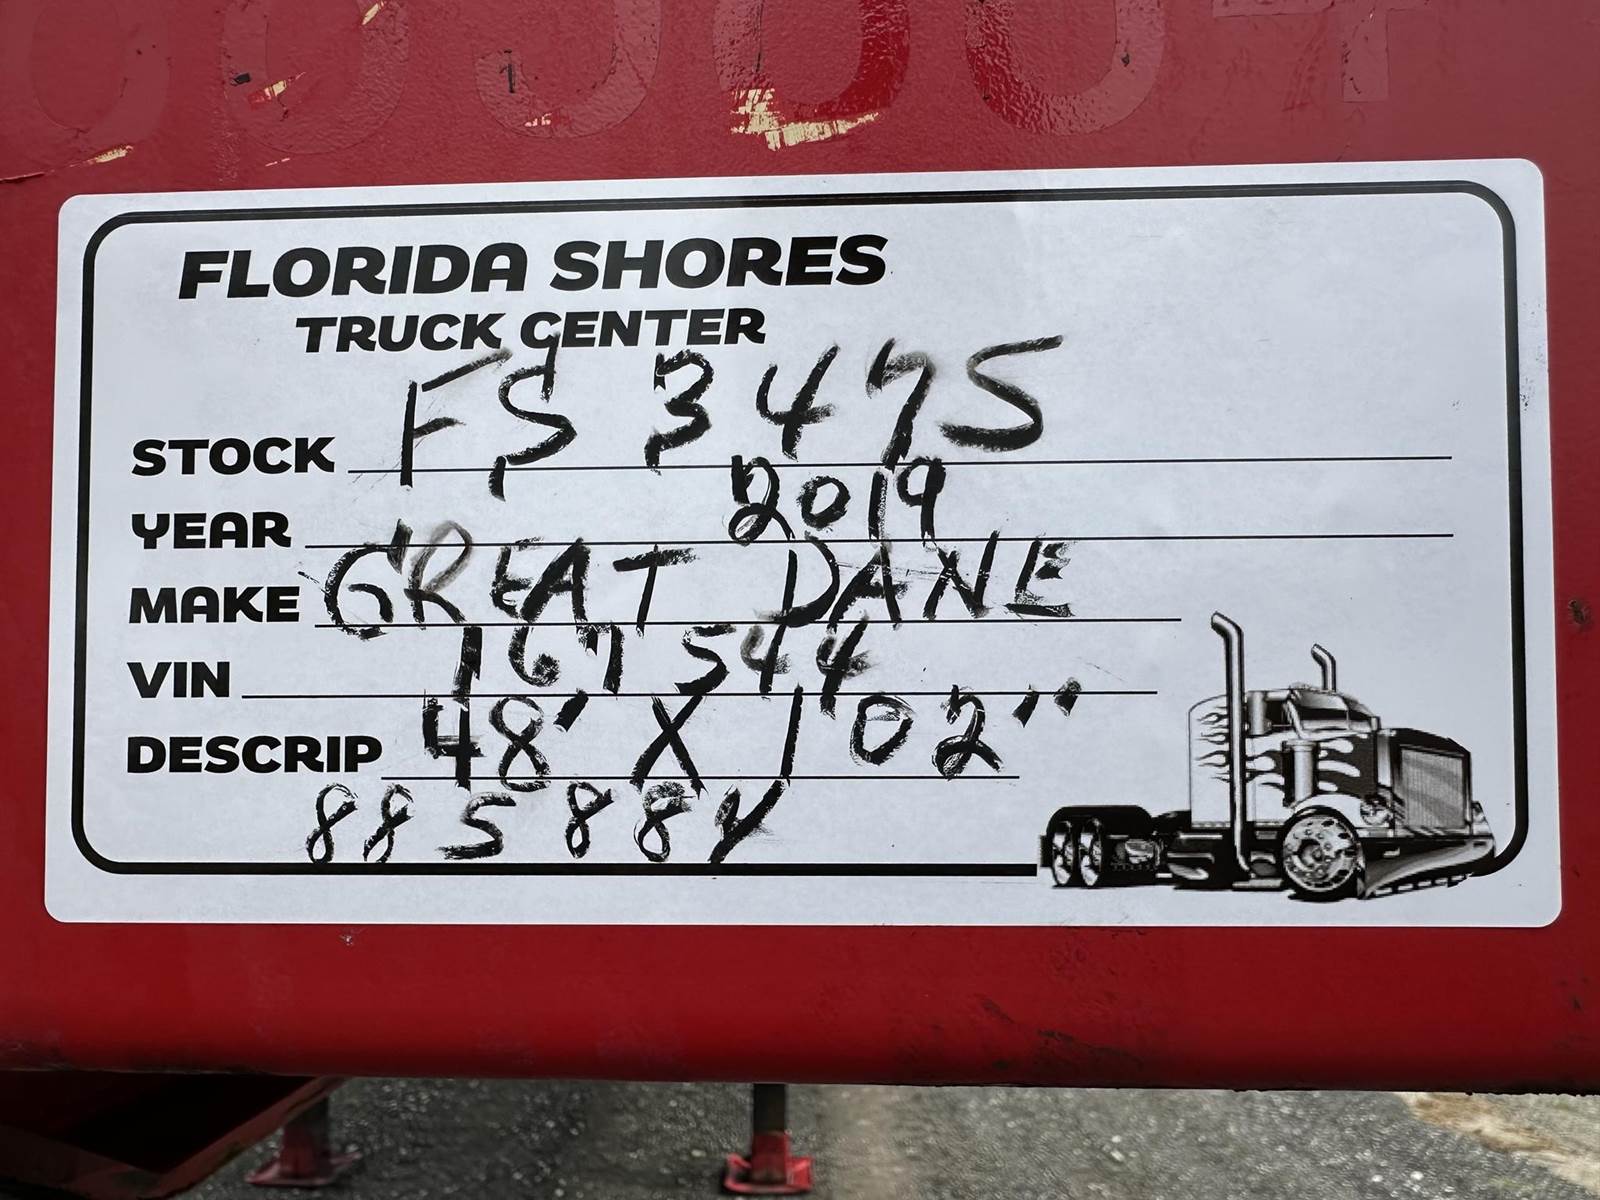 FLORIDA SHORES
TRUCK CENTER
STOCK FS 3475
YEAR 2019
MAKE GREAT DANE
VIN 167544
DESCRIP 48' X 102"
885884